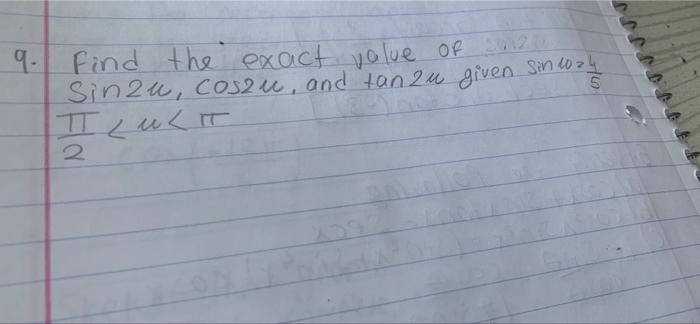 9. Find the exact value of
Sin2u, cos2u, and tan2u given sin u = 4/5
π/2 < u < π